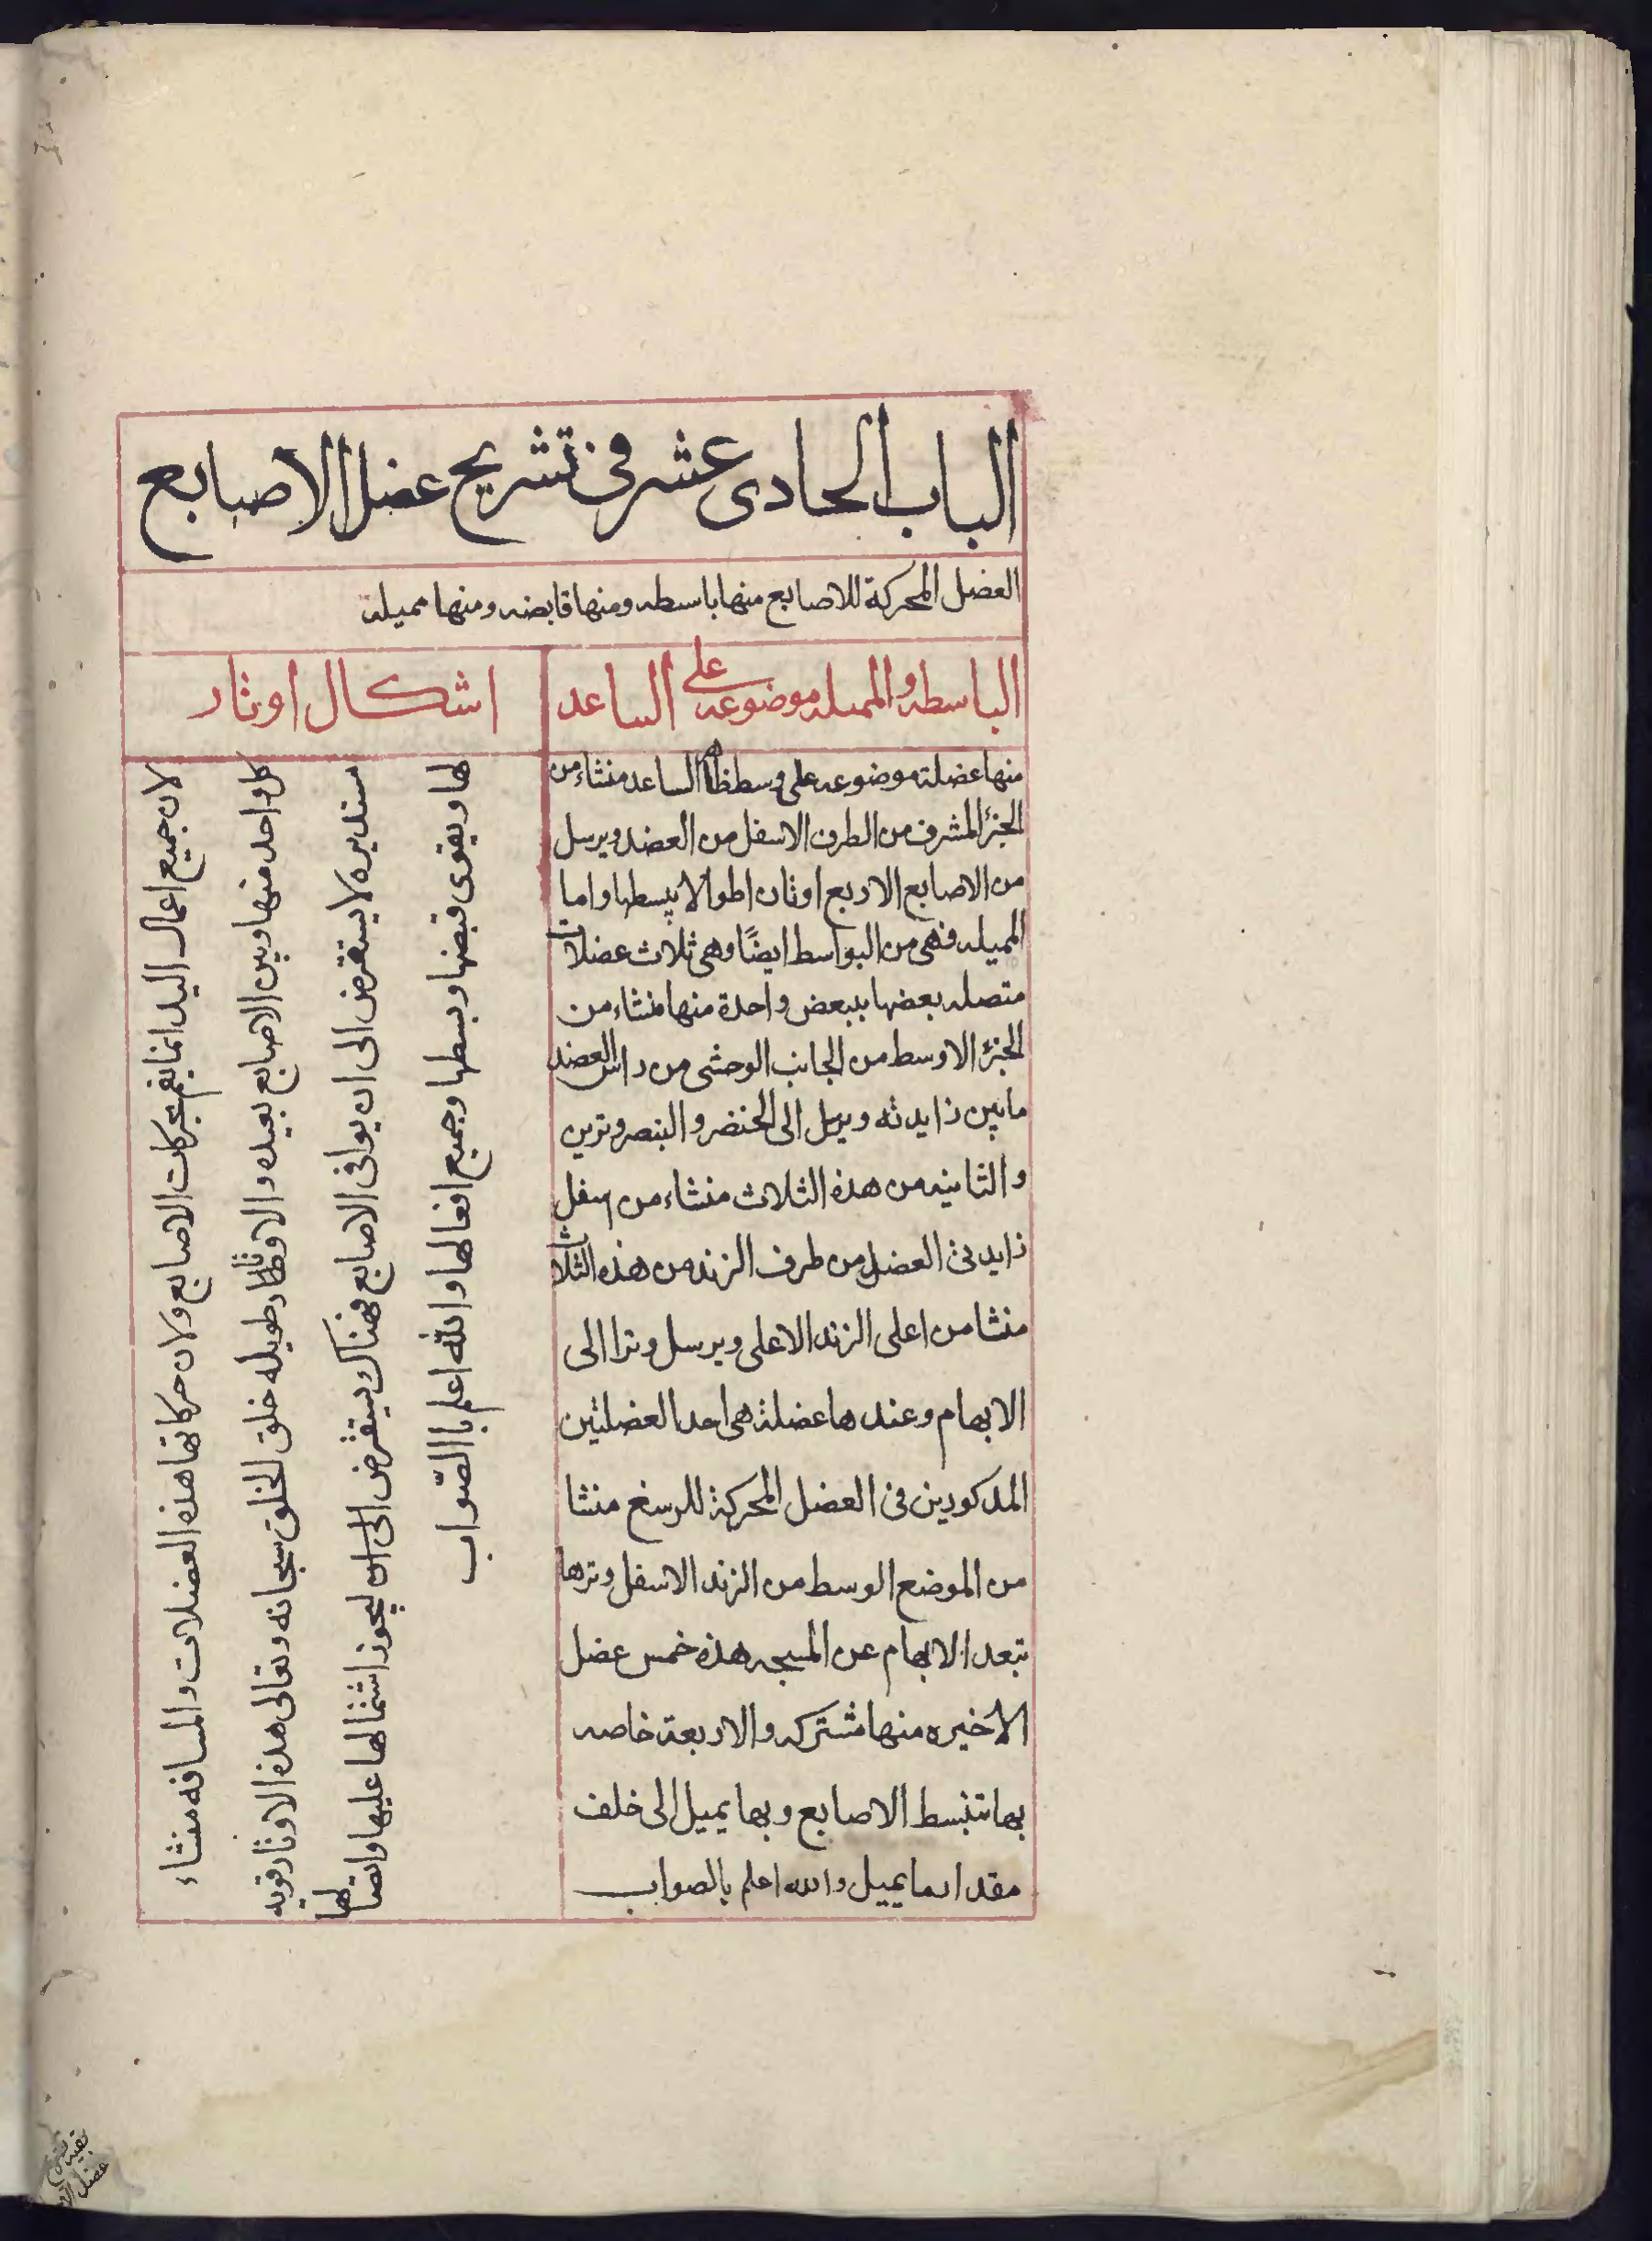 الباب الحادى عشر فى تشريح عضل الاصابع
العضل المحركة للاصابع منها باسطه ومنها قابضه ومنها مميله
الباسطه والمميله موضوعه على الساعد
منها عضلة موضوعه على وسط ظاهر الساعد منشاء من
الجزء المشرف من الطرف الاسفل من العضد ويرسل
من الاصابع الاربع اوتار اطوالا يبسطها واما
المميله فهى من البواسط ايضًا وهى ثلاث عضلات
متصله بعضها ببعض واحدة منها منشاء من
الجزء الاوسط من الجانب الوحشى من راس العضد
مابين زايدته ويرسل الى الخنصر والبنصر وترين
والثانيه من هذه الثلاث منشاء من اسفل
زايدتى العضل من طرف الزند من هذه الثلاث
منشا من اعلى الزند الاعلى ويرسل وترا الى
الابهام وعندها عضلة هى احد العضلتين
المذكورين فى العضل المحركة للرسغ منشا
من الموضع الوسط من الزند الاسفل وترها
تبعد الابهام عن المسبحه هذه خمس عضل
الاخيره منها مشتركه والاربعة خاصه
بها تنبسط الاصابع وبها يميل الى خلف
مقدار ما يميل والله اعلم بالصواب
اشكال اوتار
لان جميع اعمال اليد انما يتم بحركات الاصابع ولان حركاتها هذه العضلات والمسافه منشاء
كل واحد منها وبين الاصابع بعيده والاوتار طويله خلق الخلق سبحانه وتعالى هذه الاوتار قويه
مستديره لا يستقرض الى ان يوافى الاصابع فهناك يستقرض الى ان ليجوز اشتمالها عليها واتصالها
لها ويقوى قبضها وبسطها وجميع افعالها والله اعلم باالصّواب
بقية تشريح
عضل